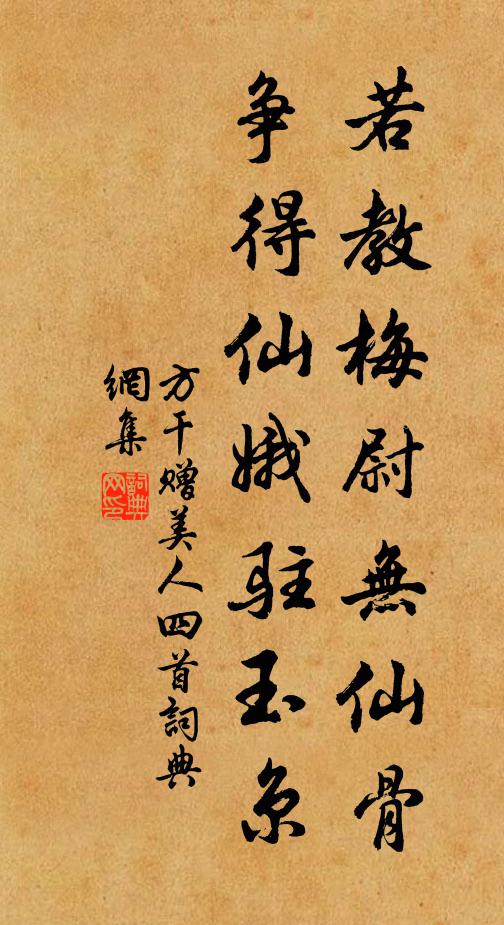 若教梅尉無仙骨
争得仙娥駐玉京
方干贈美人四首詞典
網集
詞典
网印